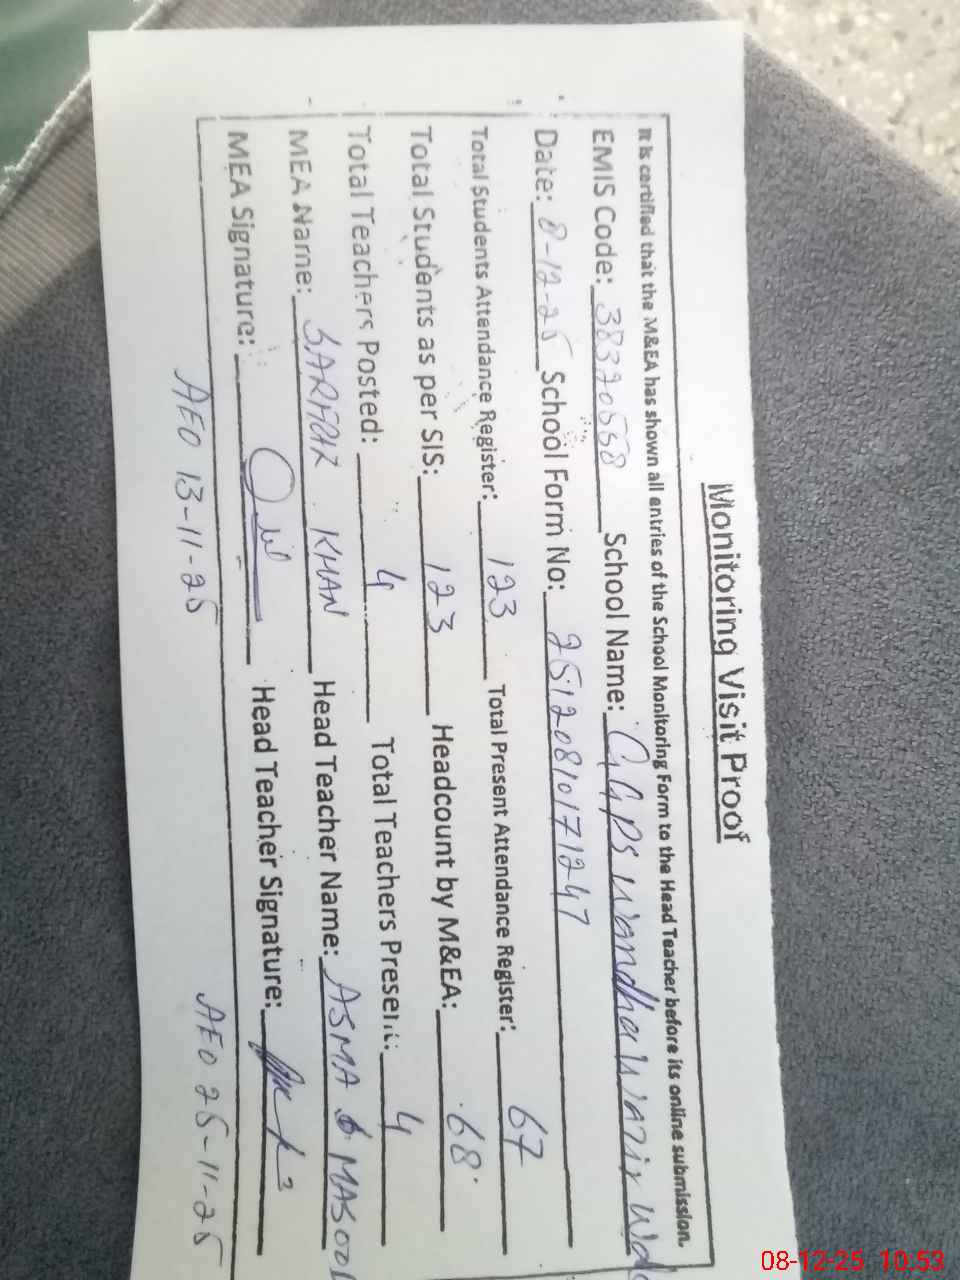 Monitoring Visit Proof
It is certified that the M&EA has shown all entries of the School Monitoring Form to the Head Teacher before its online submission.
EMIS Code: 38320558 School Name: GGPS Wandha Wazir
Date: 8-12-25 School Form No: 25120810171247
Total Students Attendance Register: 123 Total Present Attendance Register: 67
Total Students as per SIS: 123 Headcount by M&EA: 68
Total Teachers Posted: 4 Total Teachers Present: 4
MEA Name: KHAN Head Teacher Name: ASMA MASOOD
MEA Signature: Head Teacher Signature:
AEO 13-11-25 AEO 25-11-25
08-12-25 10:53